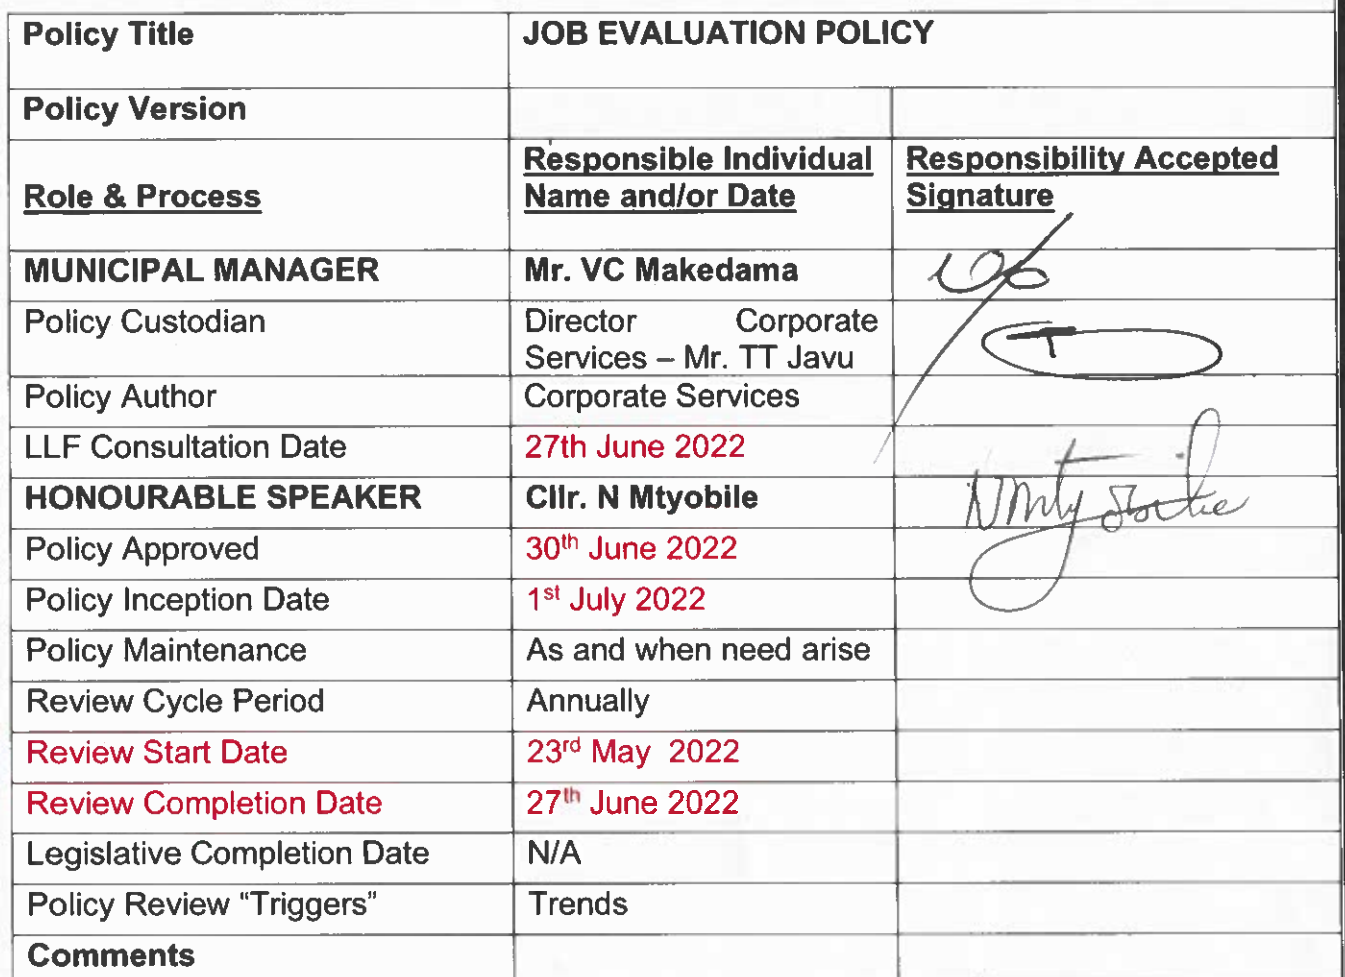 Policy Title JOB EVALUATION POLICY
Policy Version
Role & Process Responsible Individual Name and/or Date Responsibility Accepted Signature
MUNICIPAL MANAGER Mr. VC Makedama
Policy Custodian Director Corporate Services – Mr. TT Javu
Policy Author Corporate Services
LLF Consultation Date 27th June 2022
HONOURABLE SPEAKER Cllr. N Mtyobile
Policy Approved 30th June 2022
Policy Inception Date 1st July 2022
Policy Maintenance As and when need arise
Review Cycle Period Annually
Review Start Date 23rd May 2022
Review Completion Date 27th June 2022
Legislative Completion Date N/A
Policy Review “Triggers” Trends
Comments